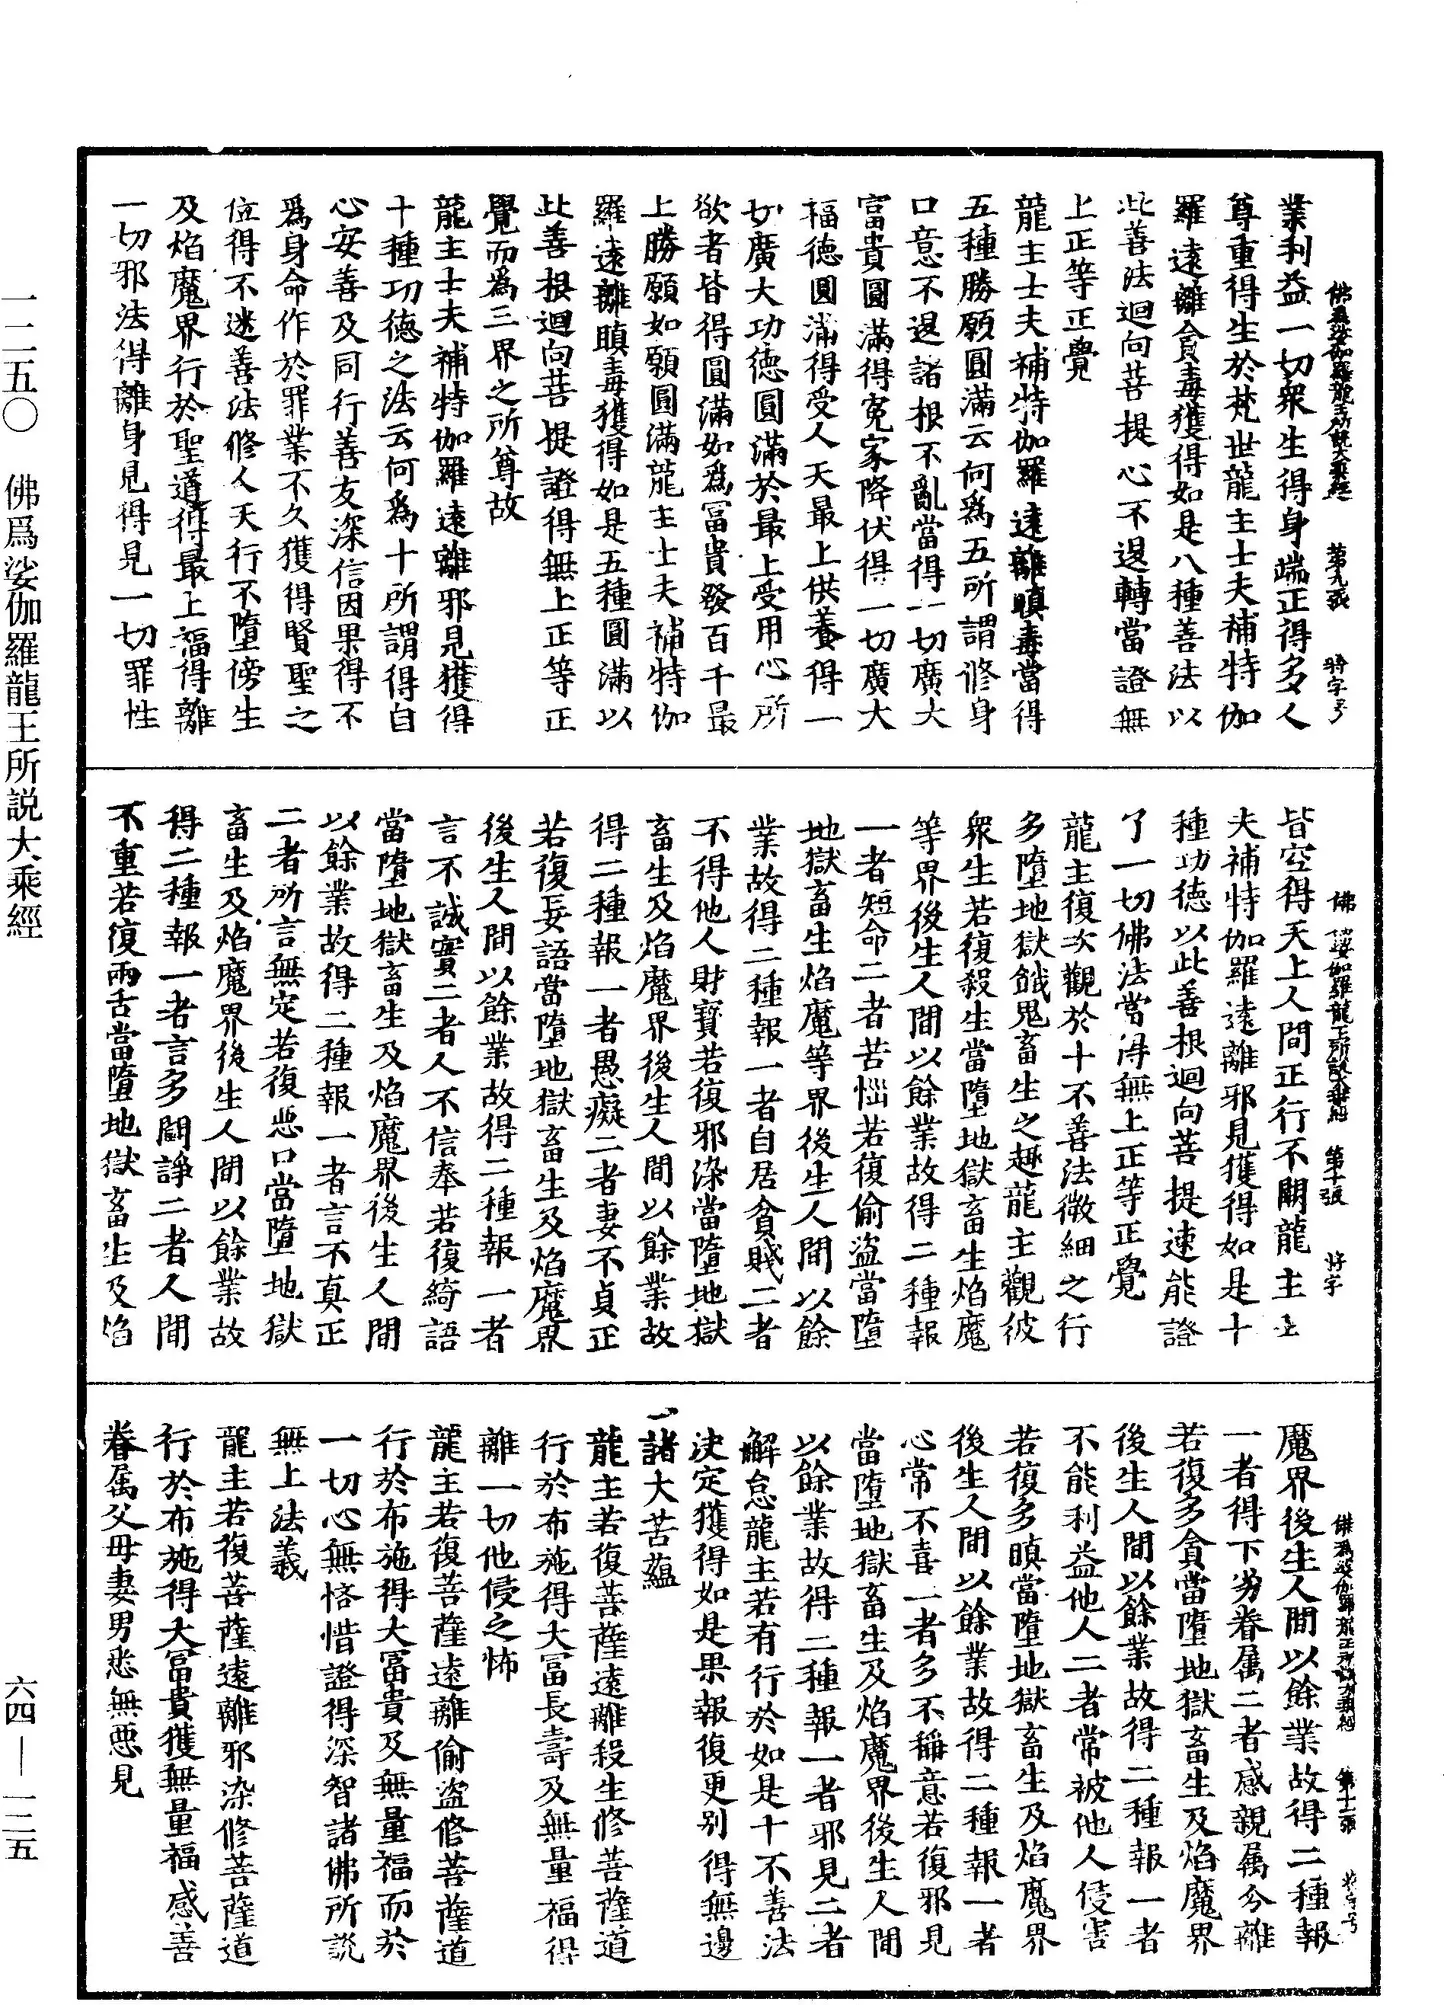 佛爲娑伽羅龍王所說大乘經 第九張 將字号
業利益一切衆生得身端正得多人
尊重得生於梵世龍主士夫補特伽
羅遠離貪毒獲得如是八種善法以
此善法迴向菩提心不退轉當證無
上正等正覺
龍主士夫補特伽羅遠離瞋毒當得
五種勝願圓滿云何爲五所謂修身
口意不退諸根不亂當得一切廣大
富貴圓滿得寃家降伏得一切廣大
福德圓滿得受人天最上供養得一
切廣大功德圓滿於最上受用心所
欲者皆得圓滿如爲冨貴發百千最
上勝願如願圓滿龍主士夫補特伽
羅遠離瞋毒獲得如是五種圓滿以
此善根迴向菩提證得無上正等正
覺而爲三界之所尊故
龍主士夫補特伽羅遠離邪見獲得
十種功德之法云何爲十所謂得自
心安善及同行善友深信因果得不
爲身命作於罪業不久獲得賢聖之
位得不迷善法修人天行不墮傍生
及焰魔界行於聖道得最上福得離
一切邪法得離身見得見一切罪性
佛 娑伽羅龍王所說大乘經 第十張 將字
皆空得天上人間正行不闕龍主士
夫補特伽羅遠離邪見獲得如是十
種功德以此善根迴向菩提速能證
了一切佛法當得無上正等正覺
龍主復次觀於十不善法微細之行
多墮地獄餓鬼畜生之趣龍主觀彼
衆生若復殺生當墮地獄畜生焰魔
等界後生人間以餘業故得二種報
一者短命二者苦惱若復偷盜當墮
地獄畜生焰魔等界後生人間以餘
業故得二種報一者自居貧賤二者
不得他人財寳若復邪染當墮地獄
畜生及焰魔界後生人間以餘業故
得二種報一者愚癡二者妻不貞正
若復妄語當墮地獄畜生及焰魔界
後生人間以餘業故得二種報一者
言不誠實二者人不信奉若復綺語
當墮地獄畜生及焰魔界後生人間
以餘業故得二種報一者言不真正
二者所言無定若復惡口當墮地獄
畜生及焰魔界後生人間以餘業故
得二種報一者言多鬪諍二者人間
不重若復兩舌當墮地獄畜生及焰
佛爲娑伽羅龍王所說大乘經 第十一張 將字号
魔界後生人間以餘業故得二種報
一者得下劣眷属二者感親属分離
若復多貪當墮地獄畜生及焰魔界
後生人間以餘業故得二種報一者
不能利益他人二者常被他人侵害
若復多瞋當墮地獄畜生及焰魔界
後生人間以餘業故得二種報一者
心常不喜二者多不稱意若復邪見
當墮地獄畜生及焰魔界後生人間
以餘業故得二種報一者邪見二者
解怠龍主若有行於如是十不善法
决定獲得如是果報復更别得無邊
諸大苦蘊
龍主若復菩薩遠離殺生修菩薩道
行於布施得大冨長壽及無量福得
離一切他侵之怖
龍主若復菩薩遠離偷盜修菩薩道
行於布施得大冨貴及無量福而於
一切心無悋惜證得深智諸佛所說
無上法義
龍主若復菩薩遠離邪染修菩薩道
行於布施得大冨貴獲無量福感善
眷属父母妻男悉無惡見
一二五〇 佛爲娑伽羅龍王所説大乘經
六四—一二五